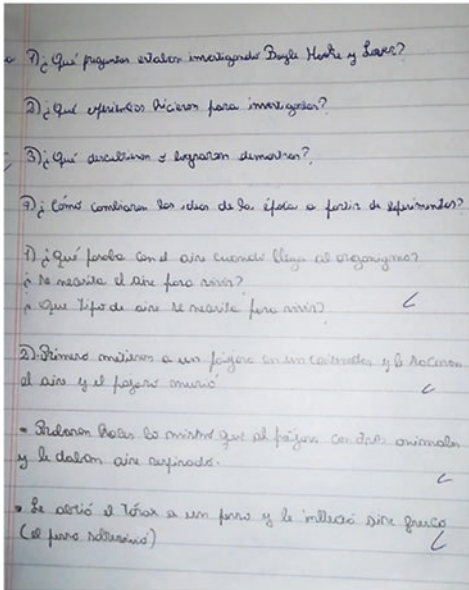 1) ¿Qué preguntas estaban investigando Boyle Hooke y Lower?
2) ¿Qué experimentos hicieron para investigarlas?
3) ¿Qué descubrieron y lograron demostrar?
4) ¿Cómo cambiaron las ideas de la época a partir de experimentos?
1) ¿Qué pasaba con el aire cuando llega al organigmo?
¿se necesita el aire para vivir?
¿Que tipo de aire se necesita para vivir?
2) Primero metieron a un pájaro en un y le sacaron
el aire y el pajaro murió
• hacer lo mismo que al pájaro con animales
y le daban aire respirado.
• Se abrió el tórax a un perro y le aire fresco
(el perro sobrevivió)